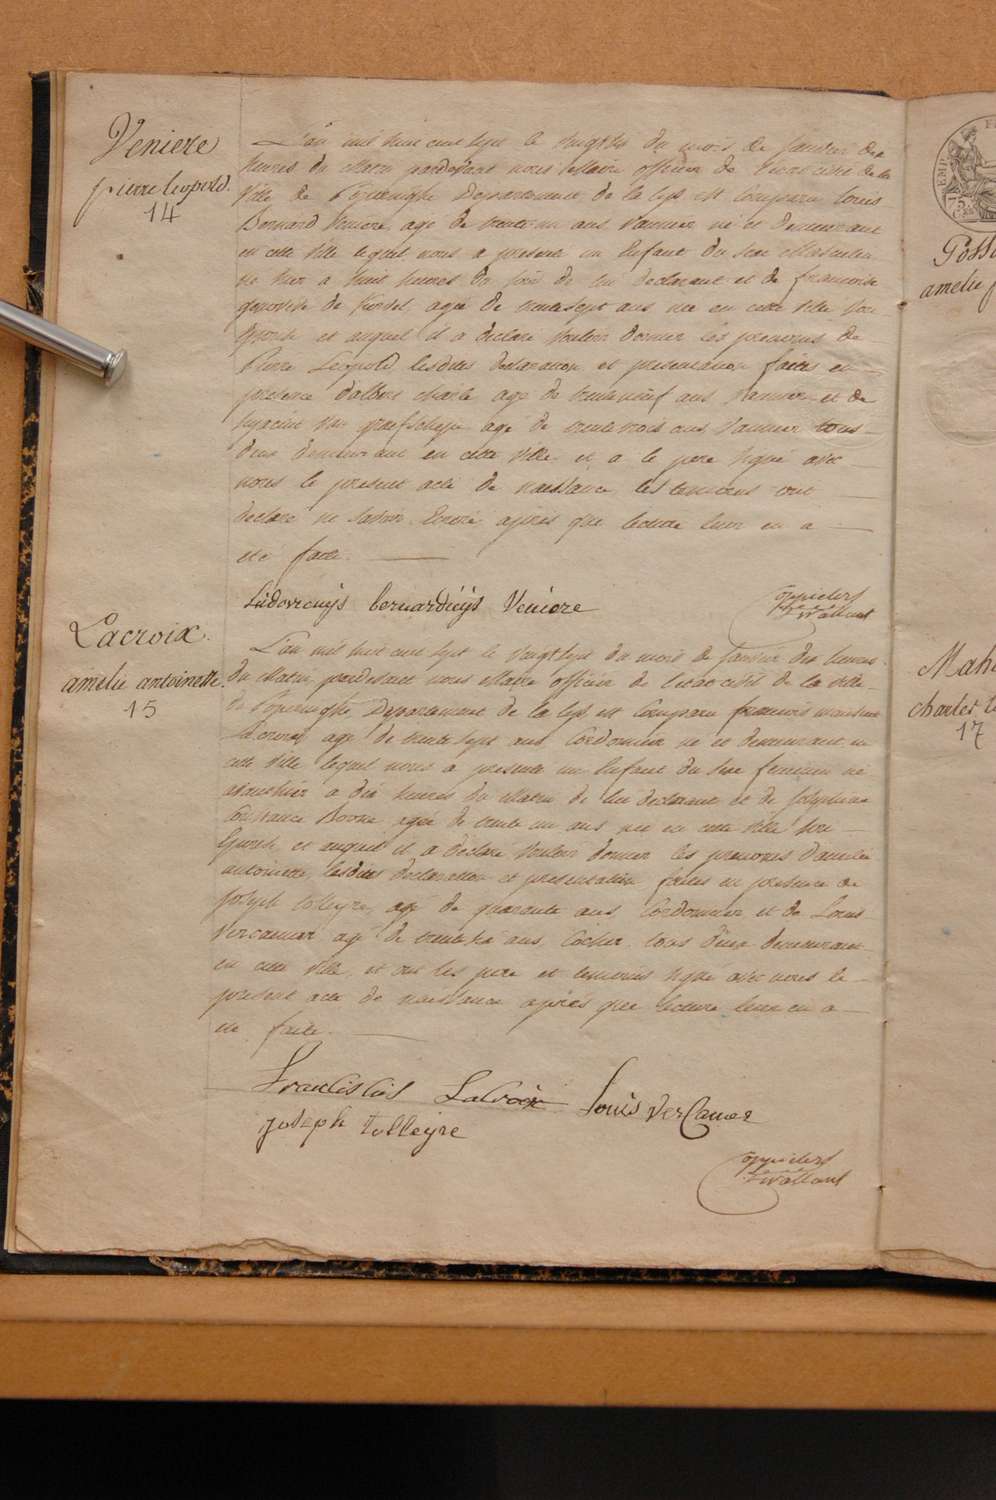 Veniere
pierre leopold.
14
L'an mil huit cent sept le vingt six du mois de Janvier dix
heures du Matin pardevant nous Maire officier de l'état civil de la
Ville de Poperinghe Departement de la Lys est Comparu Louis
Bernard Veniere agé de trente un ans Vannier né et demeurant
en cette Ville lequel nous a presenté un Enfant du sexe Masculin
né hier à huit heures du soir de lui declarant et de francoise
agée de trente sept ans née en cette Ville son
Epouse et auquel il a declaré Vouloir donner les prenoms de
Pierre Léopold, lesdites declaration et presentation faites en
presence d'albert charle agé de trente neuf ans Vannier et de
agé de trente trois ans Vannier tous
deux demeurant en cette Ville et a le pere signé avec
nous le present acte de naissance les temoins ont
declaré ne savoir Ecrire après que lecture leur en a
été faite.
Ludovicuÿs bernarduÿs Veniere
Lacroix.
amelie antoinette.
15
L'an mil huit cent sept le Vingt sept du mois de Janvier dix heures
du Matin pardevant nous Maire officier de l'état civil de la Ville
de Poperinghe, Departement de la Lys est Comparu francois
Lacroix agé de trente sept ans Cordonnier né et demeurant en
cette Ville lequel nous a presenté un Enfant du sexe feminin né
avanthier à dix heures du Matin de lui declarant et de
Constance agée de trente un ans née en cette Ville son
Epouse, et auquel il a declaré Vouloir donner les prenoms d'amelie
antoinette, lesdites declaration et presentation faites en presence de
Joseph tolleÿre, agé de quarante ans Cordonnier et de Louis
Vercamer agé de trente six ans Cocher tous deux demeurant
en cette Ville, et ont les pere et temoins signé avec nous le
present acte de naissance après que lecture leur en a
été faite.
Lacroix Louis Vercamer
Joseph tolleÿre
amelie
Mah
charles
17